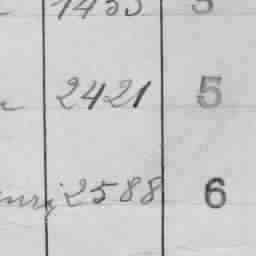 1455 5
2421 5
2588 6